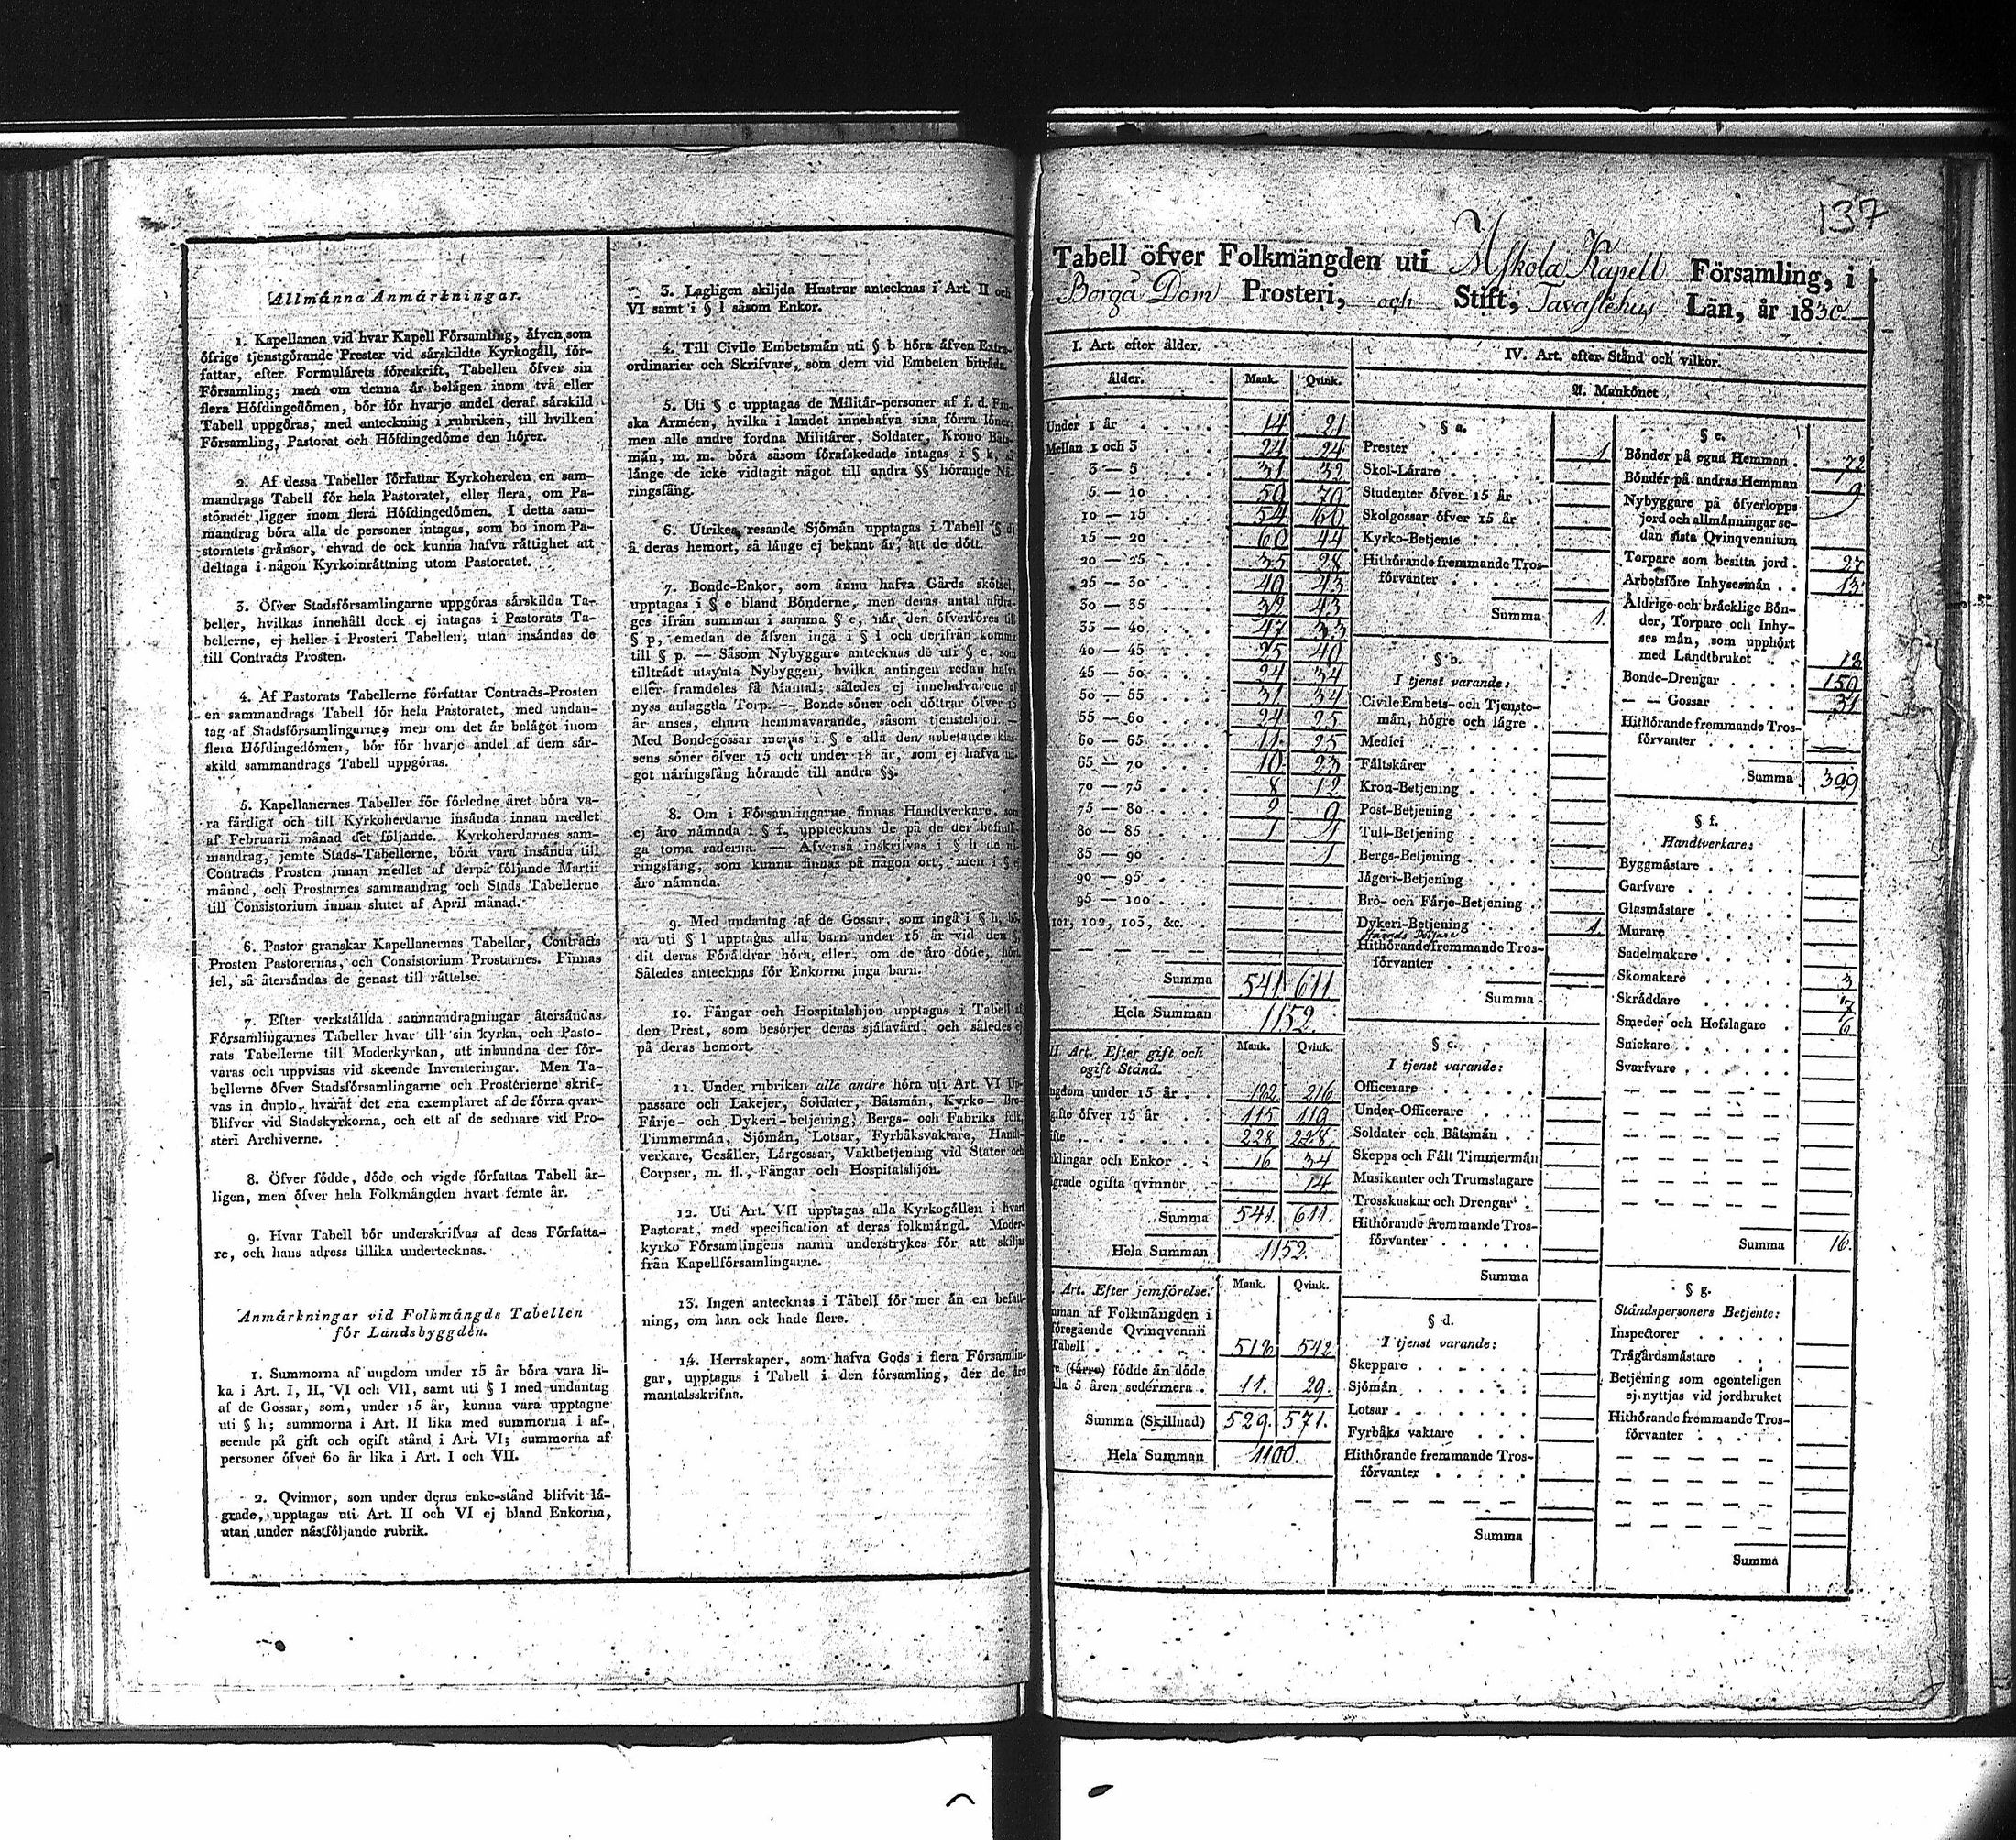 Allmänna Anmärkningar.
1. Kapellanen vid hvar Kapell Församling, äfven som
öfrige tjenstgörande Prester vid särskildte Kyrkogäll, för-
fattar, efter Formulärets föreskrift, Tabellen öfver sin
Församling; men om denna är belägen inom två eller
flera Höfdingedömen, bör för hvarje andel deraf särskild
Tabell uppgöras, med anteckning i rubriken, till hvilken
Församling, Pastorat och Höfdingedöme den hörer.
2. Af dessa Tabeller författar Kyrkoherden en sam-
mandrags Tabell för hela Pastoratet, eller flera, om Pa-
storatet ligger inom flera Höfdingedömen. I detta sam-
mandrag böra alla de personer intagas, som bo inom Pa-
storatets gränsor, ehvad de ock kunna hafva rättighet att
deltaga i någon Kyrkoinrättning utom Pastoratet.
3. Öfver Stadsförsamlingarne uppgöras särskilda Ta-
beller, hvilkas innehåll dock ej intagas i Pastorats Ta-
bellerne, ej heller i Prosteri Tabellen, utan insändas de
till Contracts Prosten.
4. Af Pastorats Tabellerne författar Contracts-Prosten
en sammandrags Tabell för hela Pastoratet, med undan-
tag af Stadsförsamlingarne; men om det är beläget inom
flera Höfdingedömen, bör för hvarje andel af dem sär-
skild sammandrags Tabell uppgöras.
5. Kapellanernes Tabeller för förledne året böra va-
ra färdiga och till Kyrkoherdarne insända innan medlet
af Februarii månad det följande. Kyrkoherdarnes sam-
mandrag, jemte Stads-Tabellerne, böra vara insända till
Contracts Prosten innan medlet af derpå följande Martii
månad, och Prostarnes sammandrag och Stads Tabellerne
till Consistorium innan slutet af April månad.
6. Pastor granskar Kapellanernas Tabeller, Contracts
Prosten Pastorernas, och Consistorium Prostarnes. Finnas
fel, så återsändas de genast till rättelse.
7. Efter verkställda sammandragningar återsändas
Församlingarnes Tabeller hvar till sin kyrka, och Pasto-
rats Tabellerne till Moderkyrkan, att inbundna der för-
varas och uppvisas vid skeende Inventeringar. Men Ta-
bellerne öfver Stadsförsamlingarne och Prosterierne skrif-
vas in duplo, hvaraf det ena exemplaret af de förra qvar-
blifver vid Stadskyrkorna, och ett af de sednare vid Pro-
steri Archiverne.
8. Öfver födde, döde och vigde författas Tabell år-
ligen, men öfver hela Folkmängden hvart femte år.
9. Hvar Tabell bör underskrifvas af dess Författa-
re, och hans adress tillika undertecknas.
Anmärkningar vid Folkmängds Tabellen
för Landsbyggden.
1. Summorna af ungdom under 15 år böra vara li-
ka i Art. I, II, VI och VII, samt uti § l med undantag
af de Gossar, som, under 15 år, kunna vara upptagne
uti § h; summorna i Art. II lika med summorna i af-
seende på gift och ogift stånd i Art. VI; summorna af
personer öfver 60 år lika i Art. I och VII.
2. Qvinnor, som under deras enke-stånd blifvit lä-
grade, upptagas uti Art. II och VI ej bland Enkorna,
utan under nästföljande rubrik.
3. Lagligen skiljda Hustrur antecknas i Art. II och
VI samt i § l såsom Enkor.
4. Till Civile Embetsmän uti § b höra äfven Extra-
ordinarier och Skrifvare, som dem vid Embeten biträda.
5. Uti § c upptagas de Militär-personer af f. d. Fin-
ska Arméen, hvilka i landet innehafva sina förra löner;
men alle andre fordna Militärer, Soldater, Krono Båts-
män, m. m. böra såsom förafskedade intagas i § k, så
länge de icke vidtagit något till andra §§ hörande Nä-
ringsfång.
6. Utrikes resande Sjömän upptagas i Tabell (§ d)
å deras hemort, så länge ej bekant är, att de dött.
7. Bonde-Enkor, som ännu hafva Gårds skötsel,
upptagas i § e bland Bönderne, men deras antal afdra-
ges ifrån summan i samma § e, när den öfverföres till
§ p, emedan de äfven ingå i § l och derifrån komma
till § p. — Såsom Nybyggare antecknas de uti § e, som
tillträdt utsynta Nybyggen, hvilka antingen redan hafva
eller framdeles få Mantal; således ej innehafvarene af
nyss anlaggda Torp. — Bonde söner och döttrar öfver 15
år anses, ehuru hemmavarande, såsom tjenstehjon. —
Med Bondegossar menas i § e alla den arbetande klas-
sens söner öfver 15 och under 18 år, som ej hafva nå-
got näringsfång hörande till andra §§.
8. Om i Församlingarne finnas Handtverkare, som
ej äro nämnda i § f, uppteckna de på de der befinteli-
ga toma raderna. — Äfvenså inskrifvas i § h de nä-
ringsfång, som kunna finnas på någon ort, men i §
äro nämnda.
9. Med undantag af de Gossar, som ingå i § h, bö-
ra uti § l upptagas alla barn under 15 år vid den §,
dit deras Föräldrar höra, eller, om de äro döde, hört.
Således antecknas för Enkorna inga barn.
10. Fångar och Hospitalshjon upptagas i Tabell af
den Prest, som besörjer deras själavård, och således ej
på deras hemort.
11. Under rubriken alle andre höra uti Art. VI Up-
passare och Lakejer, Soldater, Båtsmän, Kyrko- Bro-
Färje- och Dykeri-betjening, Bergs- och Fabriks folk,
Timmermän, Sjömän, Lotsar, Fyrbåksvaktare, Handt-
verkare, Gesäller, Lärgossar, Vaktbetjening vid Stater och
Corpser, m. fl., Fångar och Hospitalshjon.
12. Uti Art. VII upptagas alla Kyrkogällen i hvart
Pastorat, med specification af deras folkmängd. Moder-
kyrko Församlingens namn understrykes för att skiljas
från Kapellförsamlingarne.
13. Ingen antecknas i Tabell för mer än en befatt-
ning, om han ock hade flere.
14. Herrskaper, som hafva Gods i flera Församlin-
gar, upptagas i Tabell i den församling, der de äro
mantalsskrifna.
137
Tabell öfver Folkmängden uti Itskola Kapell Församling, i
Borgå Dom Prosteri, och Stift, Tavastehus Län, år 1830.
I. Art. efter ålder.
Ålder. Mank. Qvink.
Under 1 år 14 21
Mellan 1 och 3 24 24
3 — 5 31 32
5 — 10 59 79
10 — 15 54 60
15 — 20 60 44
20 — 25 35 28
25 — 30 40 43
30 — 35 39 43
35 — 40 47 33
40 — 45 25 40
45 — 50 24 34
50 — 55 31 34
55 — 60 24 25
60 — 65 11 25
65 — 70 10 23
70 — 75 8 12
75 — 80 2 9
80 — 85 1
85 — 90 1
90 — 95
95 — 100
101, 102, 103, &c.
Summa 541 611
Hela Summan 1152.
II. Art. Efter gift och
ogift Stånd. Mank. Qvink.
ngdom under 15 år 182 216
gifte öfver 15 år 115 119
ifte 228 228
klingar och Enkor 16 34
grade ogifta qvinnor 14
Summa 541. 611.
Hela Summan 1152.
Art. Efter jemförelse. Mank. Qvink.
man af Folkmängden i
föregående Qvinqvennii
Tabell 518 542
(färre) födde än döde
lla 5 åren sedermera 11. 29.
Summa (Skillnad) 529. 571.
Hela Summan 1100.
IV. Art. efter Stånd och vilkor.
A. Mankönet
§ a.
Prester 1
Skol-Lärare
Studenter öfver 15 år
Skolgossar öfver 15 år
Kyrko-Betjente
Hithörande fremmande Tros-
förvanter
Summa 1.
§ b.
I tjenst varande:
Civile Embets- och Tjenste-
män, högre och lägre
Medici
Fältskärer
Kron-Betjening
Post-Betjening
Tull-Betjening
Bergs-Betjening
Jägeri-Betjening
Bro- och Färje-Betjening
Dykeri-Betjening 1.
Hithörande fremmande Tros-
förvanter
Summa
§ c.
I tjenst varande:
Officerare
Under-Officerare
Soldater och Båtsmän
Skepps och Fält Timmermän
Musikanter och Trumslagare
Trosskuskar och Drengar
Hithörande fremmande Tros-
förvanter
Summa
§ d.
I tjenst varande:
Skeppare
Sjömän
Lotsar
Fyrbåks vaktare
Hithörande fremmande Tros-
förvanter
Summa
§ e.
Bönder på egna Hemman 72
Bönder på andras Hemman 9
Nybyggare på öfverlopps
jord och allmänningar se-
dan sista Qvinqvennium
Torpare som besitta jord 27
Arbetsföre Inhysesmän 13
Åldrige och bräcklige Bön-
der, Torpare och Inhy-
ses män, som upphört
med Landtbruket 18
Bonde-Drengar 159
— — Gossar 31
Hithörande fremmande Tros-
förvanter
Summa 329
§ f.
Handtverkare:
Byggmästare
Garfvare
Glasmästare
Murare
Sadelmakare
Skomakare 3
Skräddare 7
Smeder och Hofslagare 6
Snickare
Svarfvare
Summa 16.
§ g.
Ståndspersoners Betjente:
Inspectorer
Trägårdsmästare
Betjening som egenteligen
ej nyttjas vid jordbruket
Hithörande fremmande Tros-
förvanter
Summa